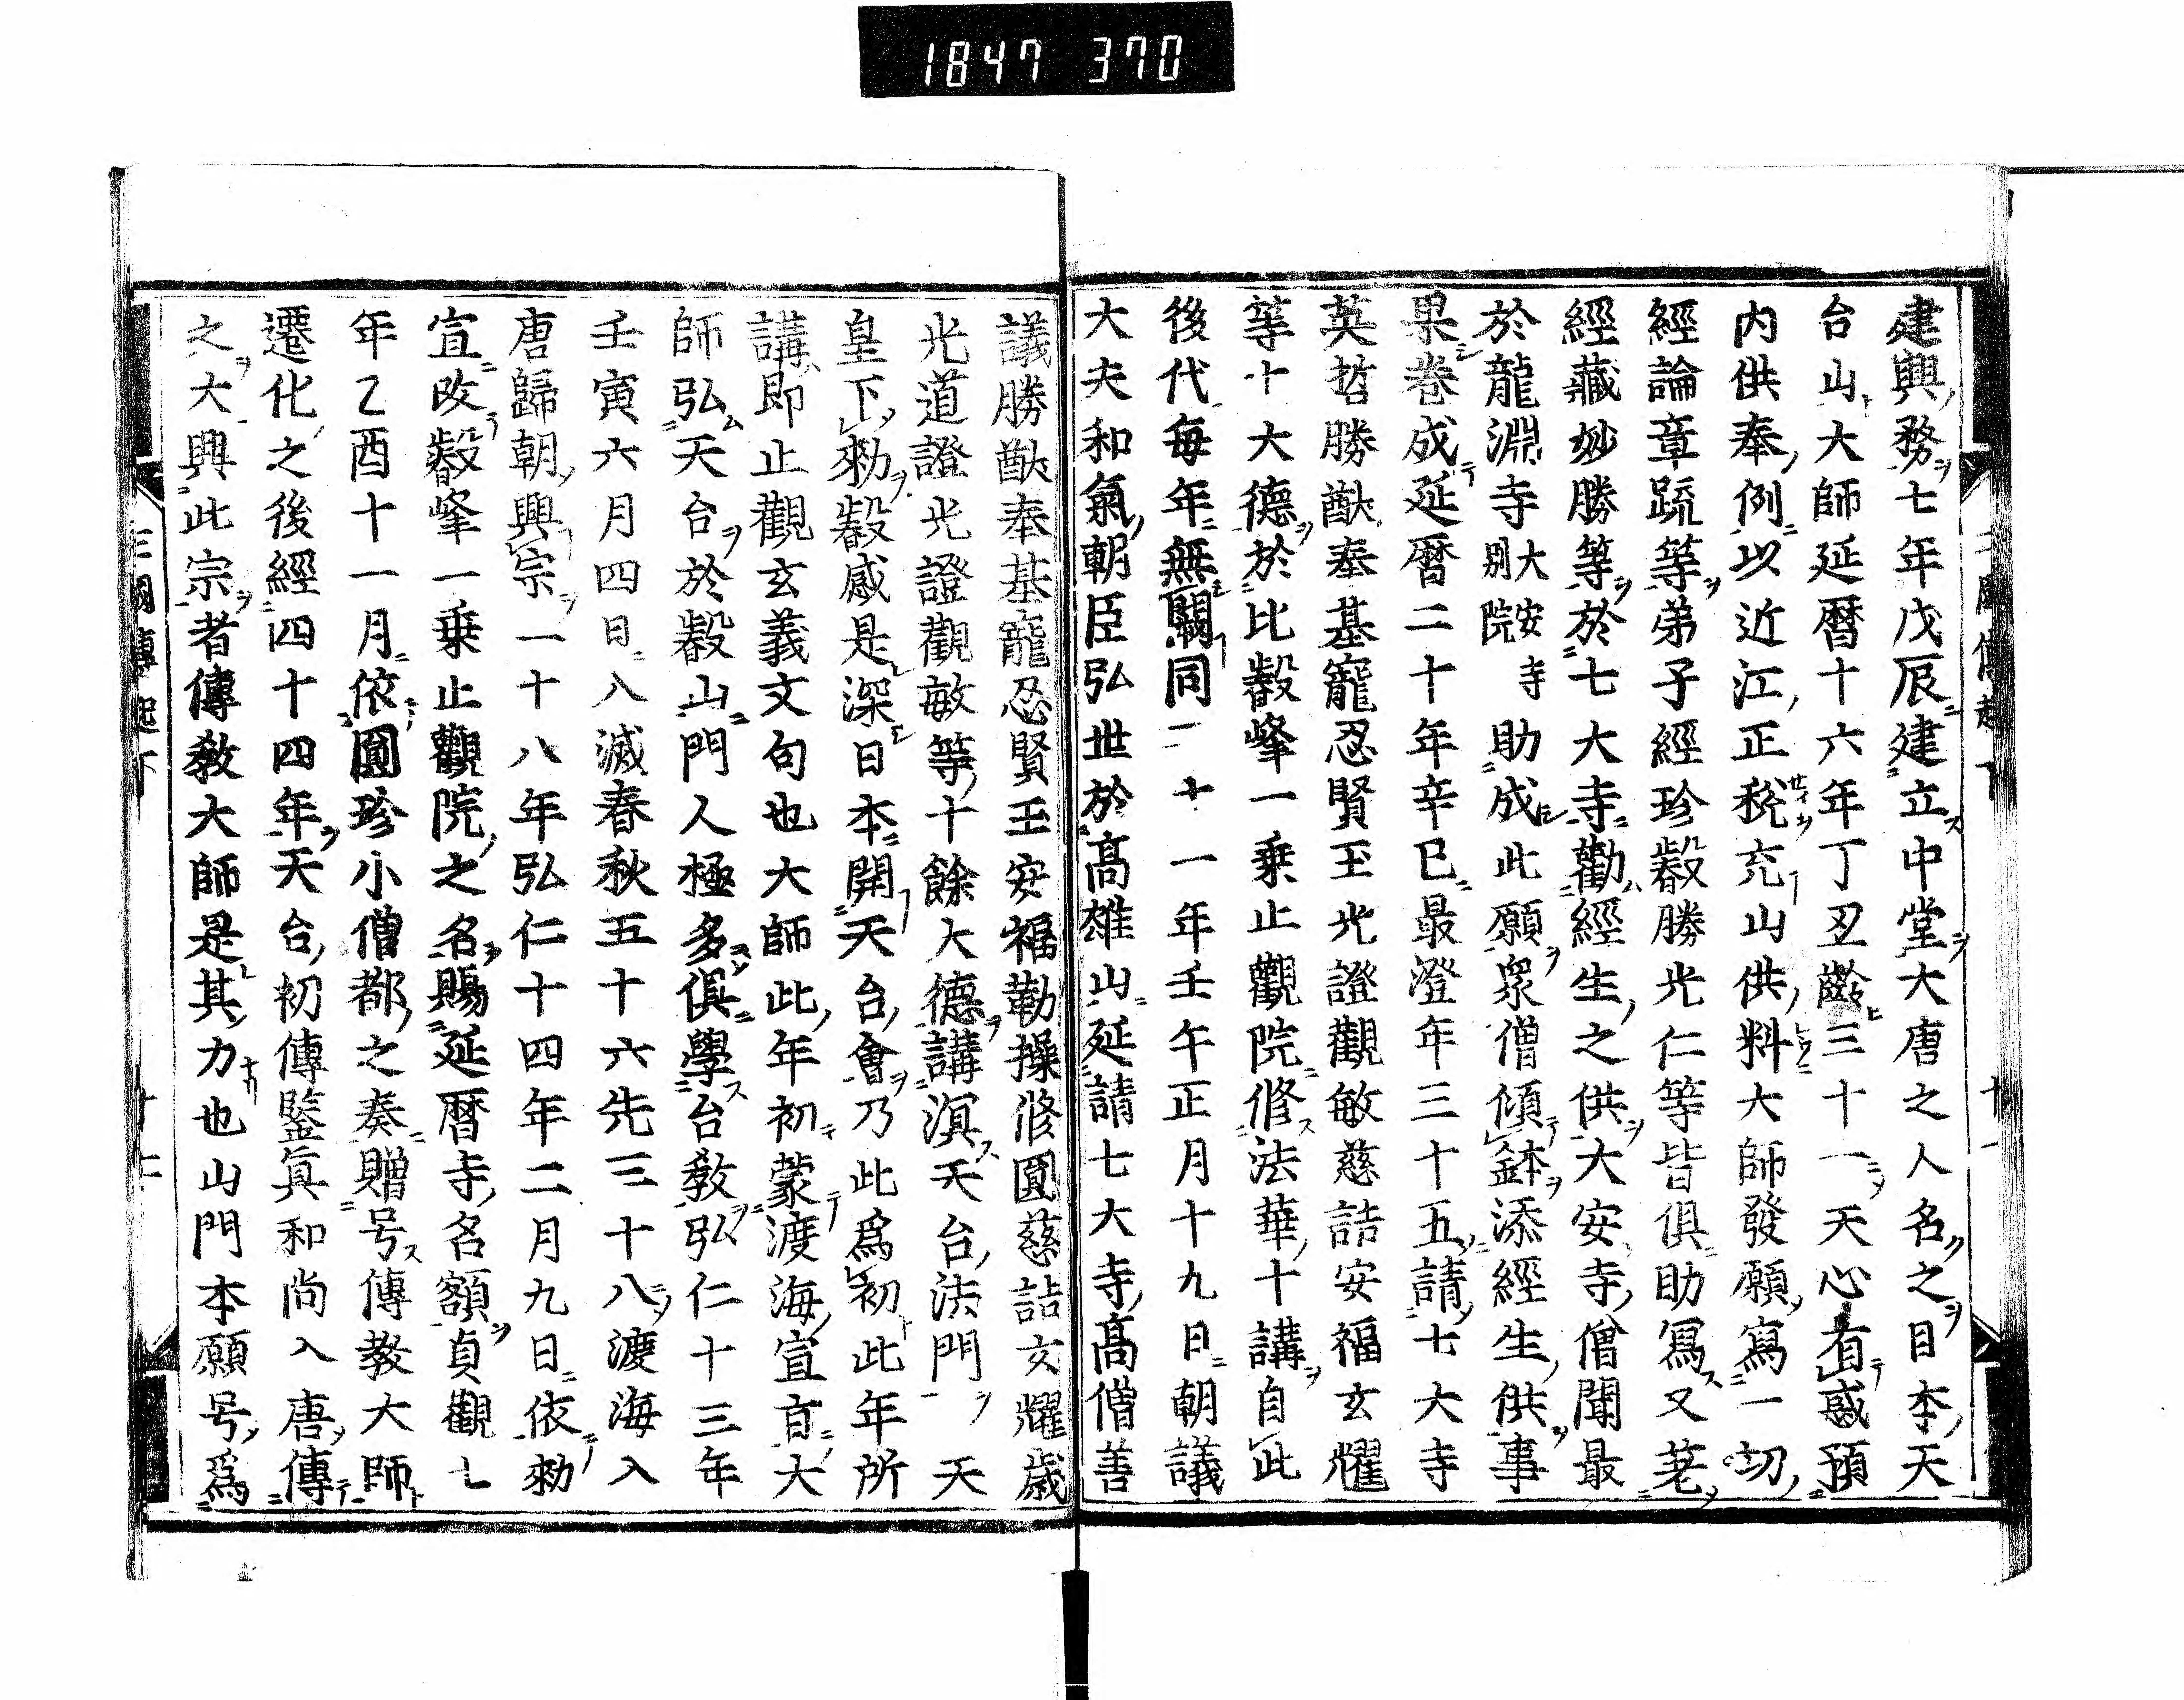 1847 370
建興務七年戊辰建立中堂大唐之人名之日本天
台山大師延暦十六年丁丑齡三十一天心有感預
内供奉例以近江正税充山供料大師發願寫一切
經論章䟽等弟子經珍叡勝光仁等皆俱助寫又荖
經藏妙勝等於七大寺勸經生之供大安寺僧聞最
於龍淵寺大安寺別院助成此願衆僧傾鉢添經生供事
果卷成延暦二十年辛巳最澄年三十五請七大寺
英哲勝猷奉基寵忍賢玉光證觀敏慈誥安福玄耀
等十大德於比叡峯一乗止觀院修法華十講自此
後代每年無闕同二十一年壬午正月十九日朝議
大夫和氣朝臣弘世於髙雄山延請七大寺髙僧善
議勝猷奉基寵忍賢玉安福勤操修圓慈誥玄耀歳
光道證光證觀敏等十餘大德講演天台法門天
皇下勑叡感是深日本開天台會乃此爲初此年所
講即止觀玄義文句也大師此年初蒙渡海宣旨大
師弘天台於叡山門人極多俱學台教弘仁十三年
壬寅六月四日入滅春秋五十六先三十八渡海入
唐歸朝興宗一十八年弘仁十四年二月九日依勑
宣改叡峯一乗止觀院之名賜延暦寺名額貞觀七
年乙酉十一月依圓珍小僧都之奏贈号傳教大師
遷化之後經四十四年天台初傳鑒真和尚入唐傳
之大興此宗者傳教大師是其力也山門本願号爲
三國傳起下